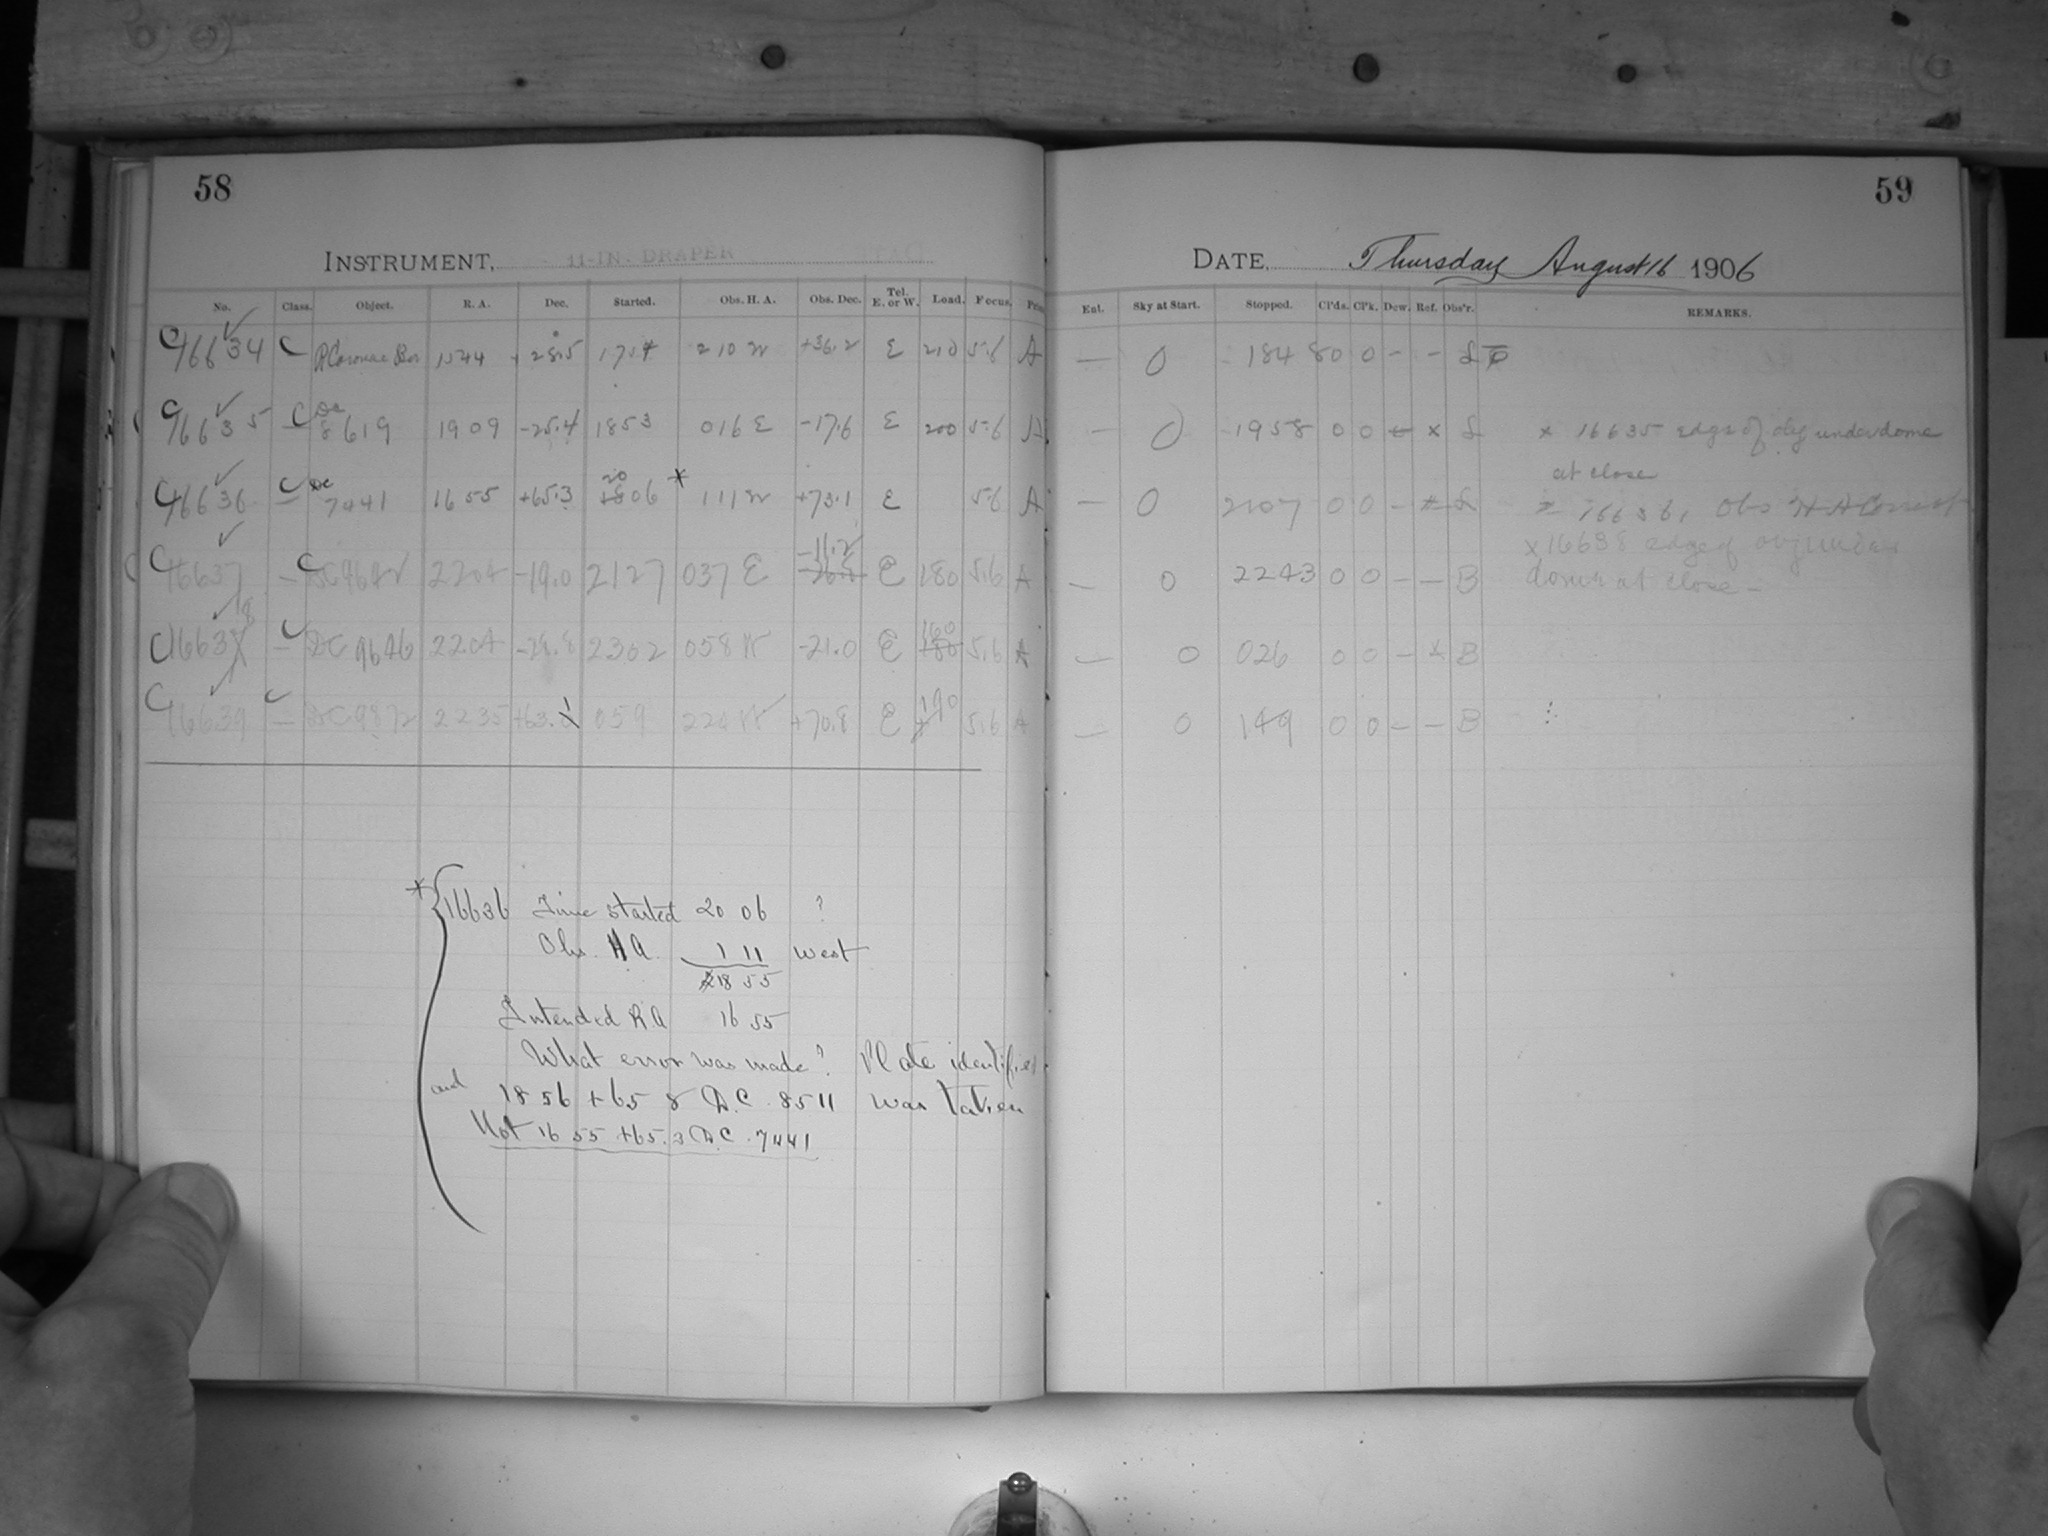 58
INSTRUMENT, 11-IN. DRAPER
No. Class. Object. R. A. Dec. Started. Obs. H. A. Obs. Dec. Tel. E. or W. Load. Focus.
C16634 C R Coronae Bor 1544 +28.5 210 W +36.2 E 210 5.6 A
C16635 C DC 8619 1909 -25.4 1853 016 E -17.6 E 200 5.6 A
C16636 C DC 7441 1655 +65.3 20 1806 * 111 W +73.1 E 5.6 A
C16637 C 2204 -19.0 2127 037 E -11.2 E 180 5.6 A
C16638 C DC 9646 2204 2302 058 W -21.0 E 160 5.6 A
C16639 C DC 9872 2235 +63.1 059 224 W +70.8 E 190 5.6 A
* 16636 Time started 20 06 ?
Obs. HA 1 11 west
18 55
Intended R.A 16 55
What error was made? Plate identified
and 18 56 +65 8 D.C. 8511 was taken
Not 16 55 +65.3 D.C. 7441
59
DATE, Thursday August 16 1906
Ent. Sky at Start. Stopped. Cl'ds. Cl'k. Dew. Ref. Obs'r. REMARKS.
— 0 1848 0 0 - - L
— 0 1958 0 0 - x L x 16635 edge of obj under dome
at close
— 0 2107 0 0 - x L x 16636, Obs H A Correct
x 16638 edge of obj under
— 0 2243 0 0 - - B dome at close -
— 0 026 0 0 - x B
— 0 149 0 0 - - B